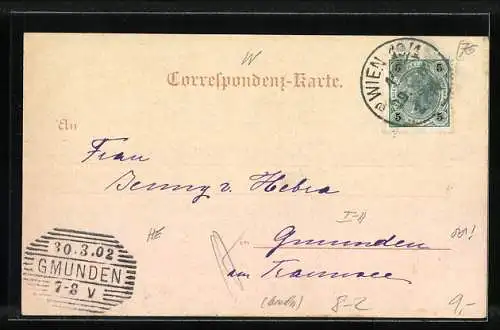 W
Correspondenz-Karte.
WIEN 19/1
5 5
5 5
An
Frau
Jenny v. Hebra
HE
I-II
in Gmunden
am Traunsee
30.3.02
GMUNDEN
7-8 V
8-2
9,-